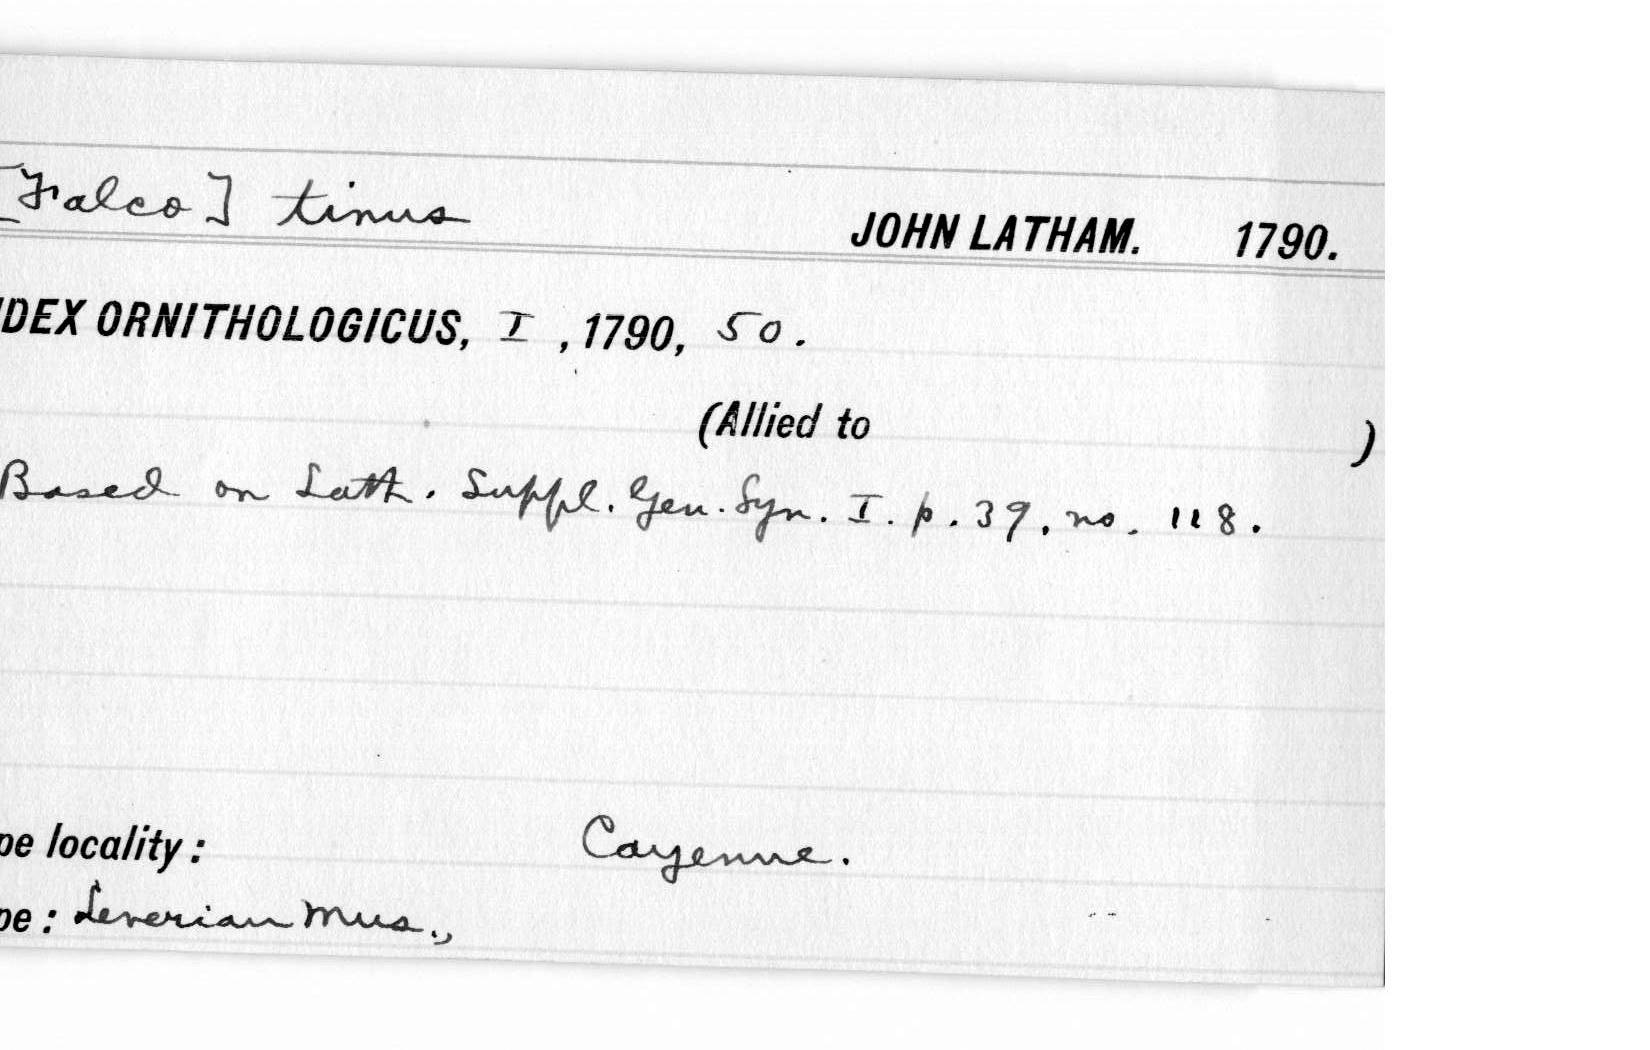 [Falco] tinus JOHN LATHAM. 1790.
NDEX ORNITHOLOGICUS, I, 1790, 50.
(Allied to )
Based on Lath. Suppl. Gen. Syn. I. p. 39, no. 118.
pe locality: Cayenne.
pe: Leverian Mus.,